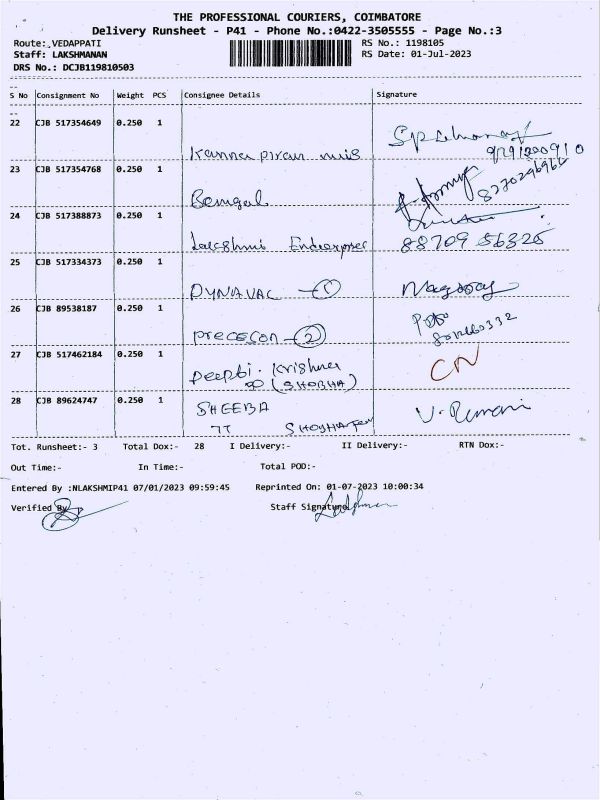 THE PROFESSIONAL COURIERS, COIMBATORE
Delivery Runsheet - P41 - Phone No.:0422-3505555 - Page No.:3
Route: VEDAPPATI RS No.: 1198105
Staff: LAKSHMANAN RS Date: 01-Jul-2023
DRS No.: DCJB119810503
S No Consignment No Weight PCS Consignee Details Signature
22 CJB 517354649 0.250 1
Kanna piran mills
23 CJB 517354768 0.250 1
Bengal
24 CJB 517388873 0.250 1
Lakshmi Enterprises 88709 56325
25 CJB 517334373 0.250 1
DYNAVAC - 1
26 CJB 89538187 0.250 1
precscon - 2
27 CJB 517462184 0.250 1 CN
Deepti. Krishna
(SHOBHA)
28 CJB 89624747 0.250 1
SHEEBA V. Ramani
77
Tot. Runsheet:- 3 Total Dox:- 28 I Delivery:- II Delivery:- RTN Dox:-
Out Time:- In Time:- Total POD:-
Entered By :NLAKSHMIP41 07/01/2023 09:59:45 Reprinted On: 01-07-2023 10:00:34
Verified By Staff Signature